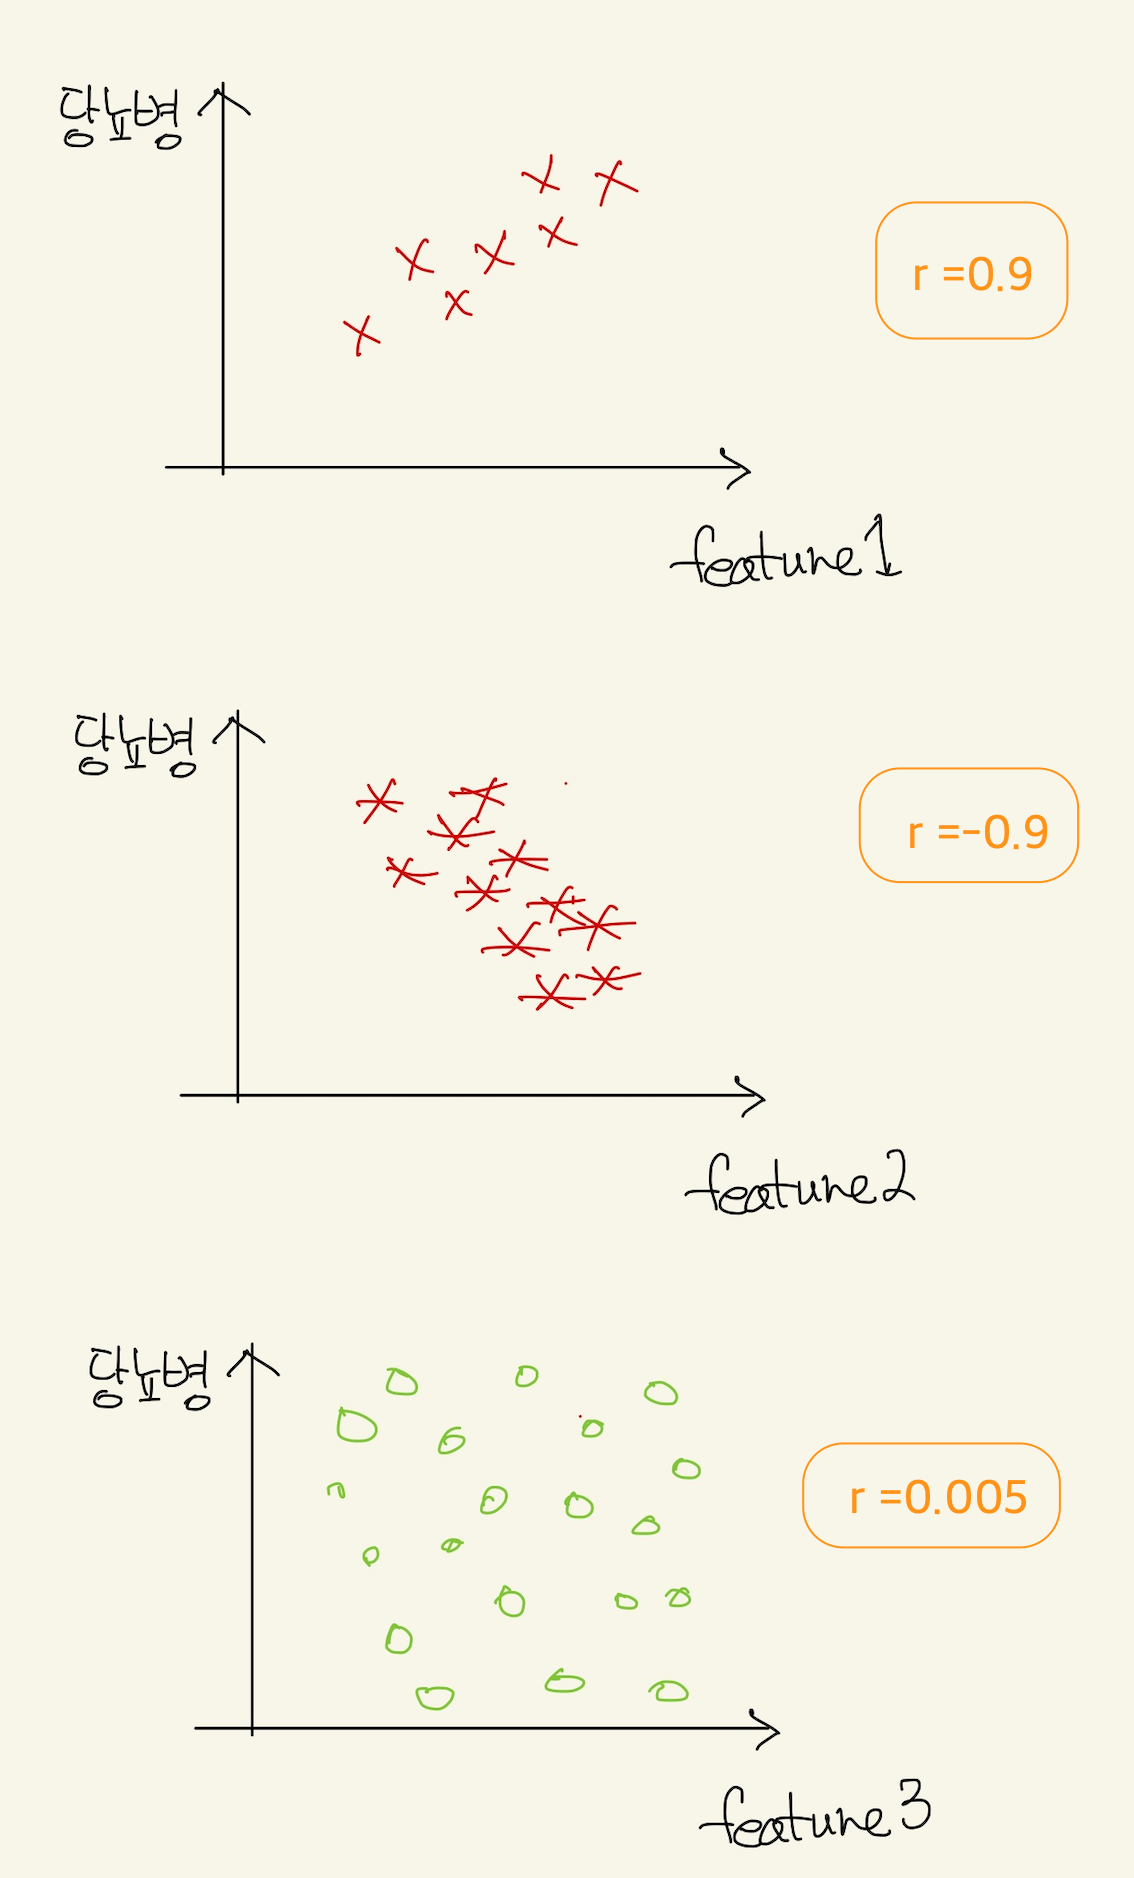 당뇨병
r =0.9
feature1
당뇨병
r =-0.9
feature2
당뇨병
r =0.005
feature3